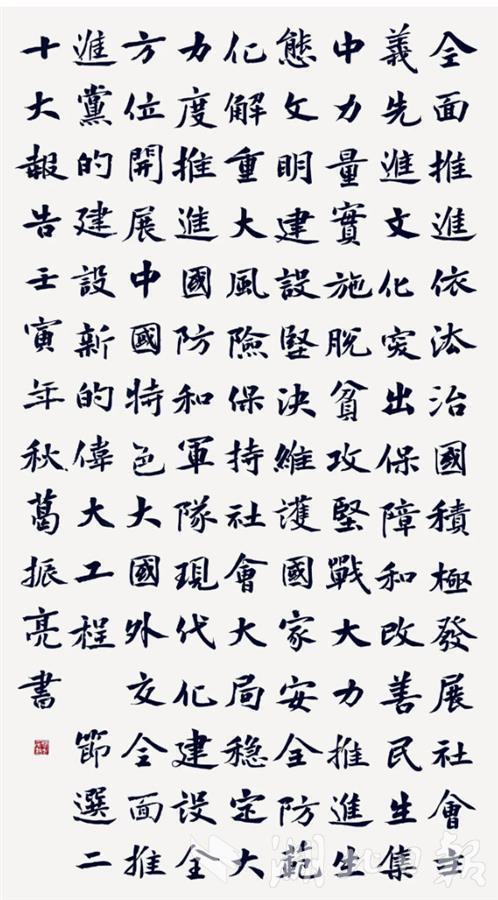 全面推進依法治國積極發展社會主
義先進文化突出保障和改善民生集
中力量實施脫貧攻堅戰大力推進生
態文明建設堅決維護國家安全防範
化解重大風險保持社會大局穩定大
力度推進國防和軍隊現代化建設全
方位開展中國特色大國外交全面推
進黨的建設新的偉大工程 節選二
十大報告壬寅年秋葛振亮書
湖北日報